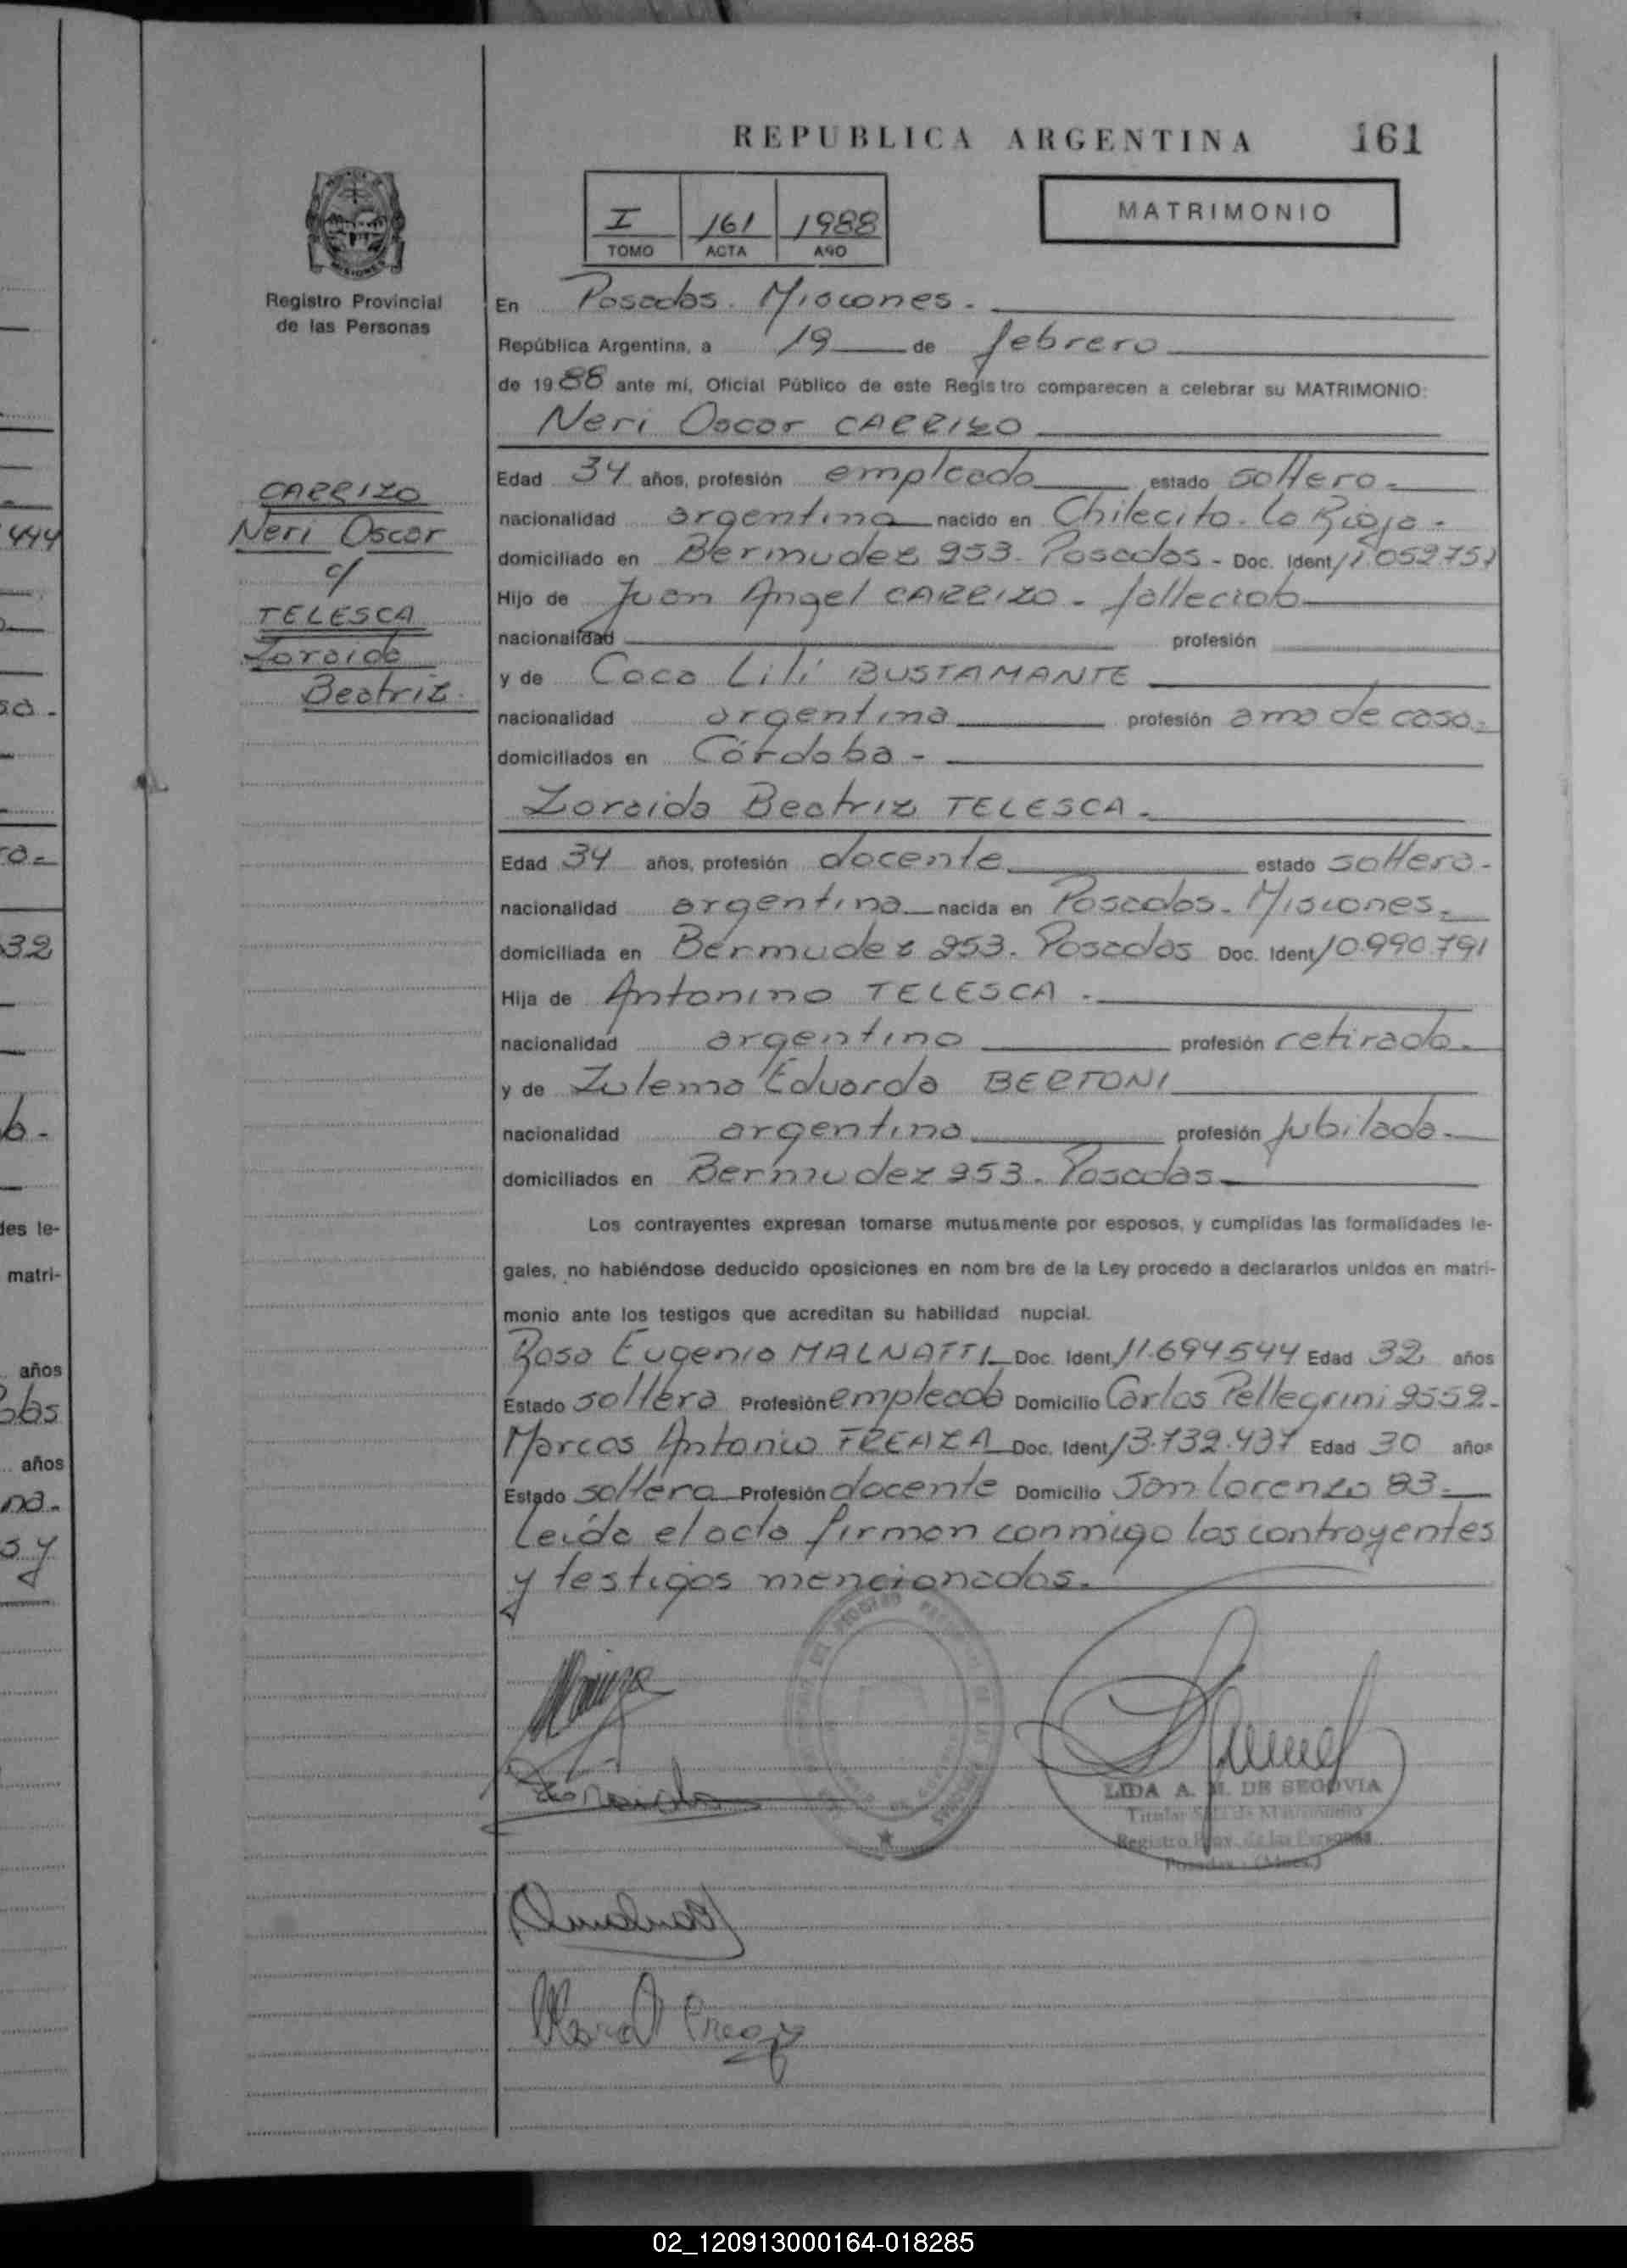 REPUBLICA ARGENTINA 161
I 161 1988
TOMO ACTA AÑO
MATRIMONIO
Registro Provincial
de las Personas
CARRIZO
Neri Oscar
c/
TELESCA
Zoraida
Beatriz.
En Posadas. Misiones.
República Argentina, a 19 de febrero
de 1988 ante mí, Oficial Público de este Registro comparecen a celebrar su MATRIMONIO:
Neri Oscar CARRIZO
Edad 34 años, profesión empleado estado soltero.
nacionalidad argentina nacido en Chilecito. La Rioja.
domiciliado en Bermudez 953. Posadas - Doc. Ident 11.059.757
Hijo de Juan Angel CARRIZO - fallecido
nacionalidad profesión
y de Coca Lili BUSTAMANTE
nacionalidad argentina profesión ama de casa.
domiciliados en Córdoba -
Zoraida Beatriz TELESCA.
Edad 34 años, profesión docente estado soltera.
nacionalidad argentina nacida en Posadas. Misiones.
domiciliada en Bermudez 953. Posadas Doc. Ident 10.990.791
Hija de Antonino TELESCA.
nacionalidad argentino profesión retirado.
y de Zulema Eduarda BERTONI
nacionalidad argentina profesión jubilada.
domiciliados en Bermudez 953. Posadas
Los contrayentes expresan tomarse mutuamente por esposos, y cumplidas las formalidades le-
gales, no habiéndose deducido oposiciones en nom bre de la Ley procedo a declararlos unidos en matri-
monio ante los testigos que acreditan su habilidad nupcial.
Rosa Eugenia MALNATTI Doc. Ident 11.694544 Edad 32 años
Estado soltera Profesión empleada Domicilio Carlos Pellegrini 2552.
Marcos Antonio FREAZA Doc. Ident 13.732.437 Edad 30 años
Estado soltero Profesión docente Domicilio San Lorenzo 83.
Leída el acta firman conmigo los contrayentes
y testigos mencionados.
Zoraida
LIDA A. M. DE SEGOVIA
Registro Prov. de las Personas
Posadas - (Mnes.)
444
32
des le-
matri-
años
años
na.
s y
02_120913000164-018285